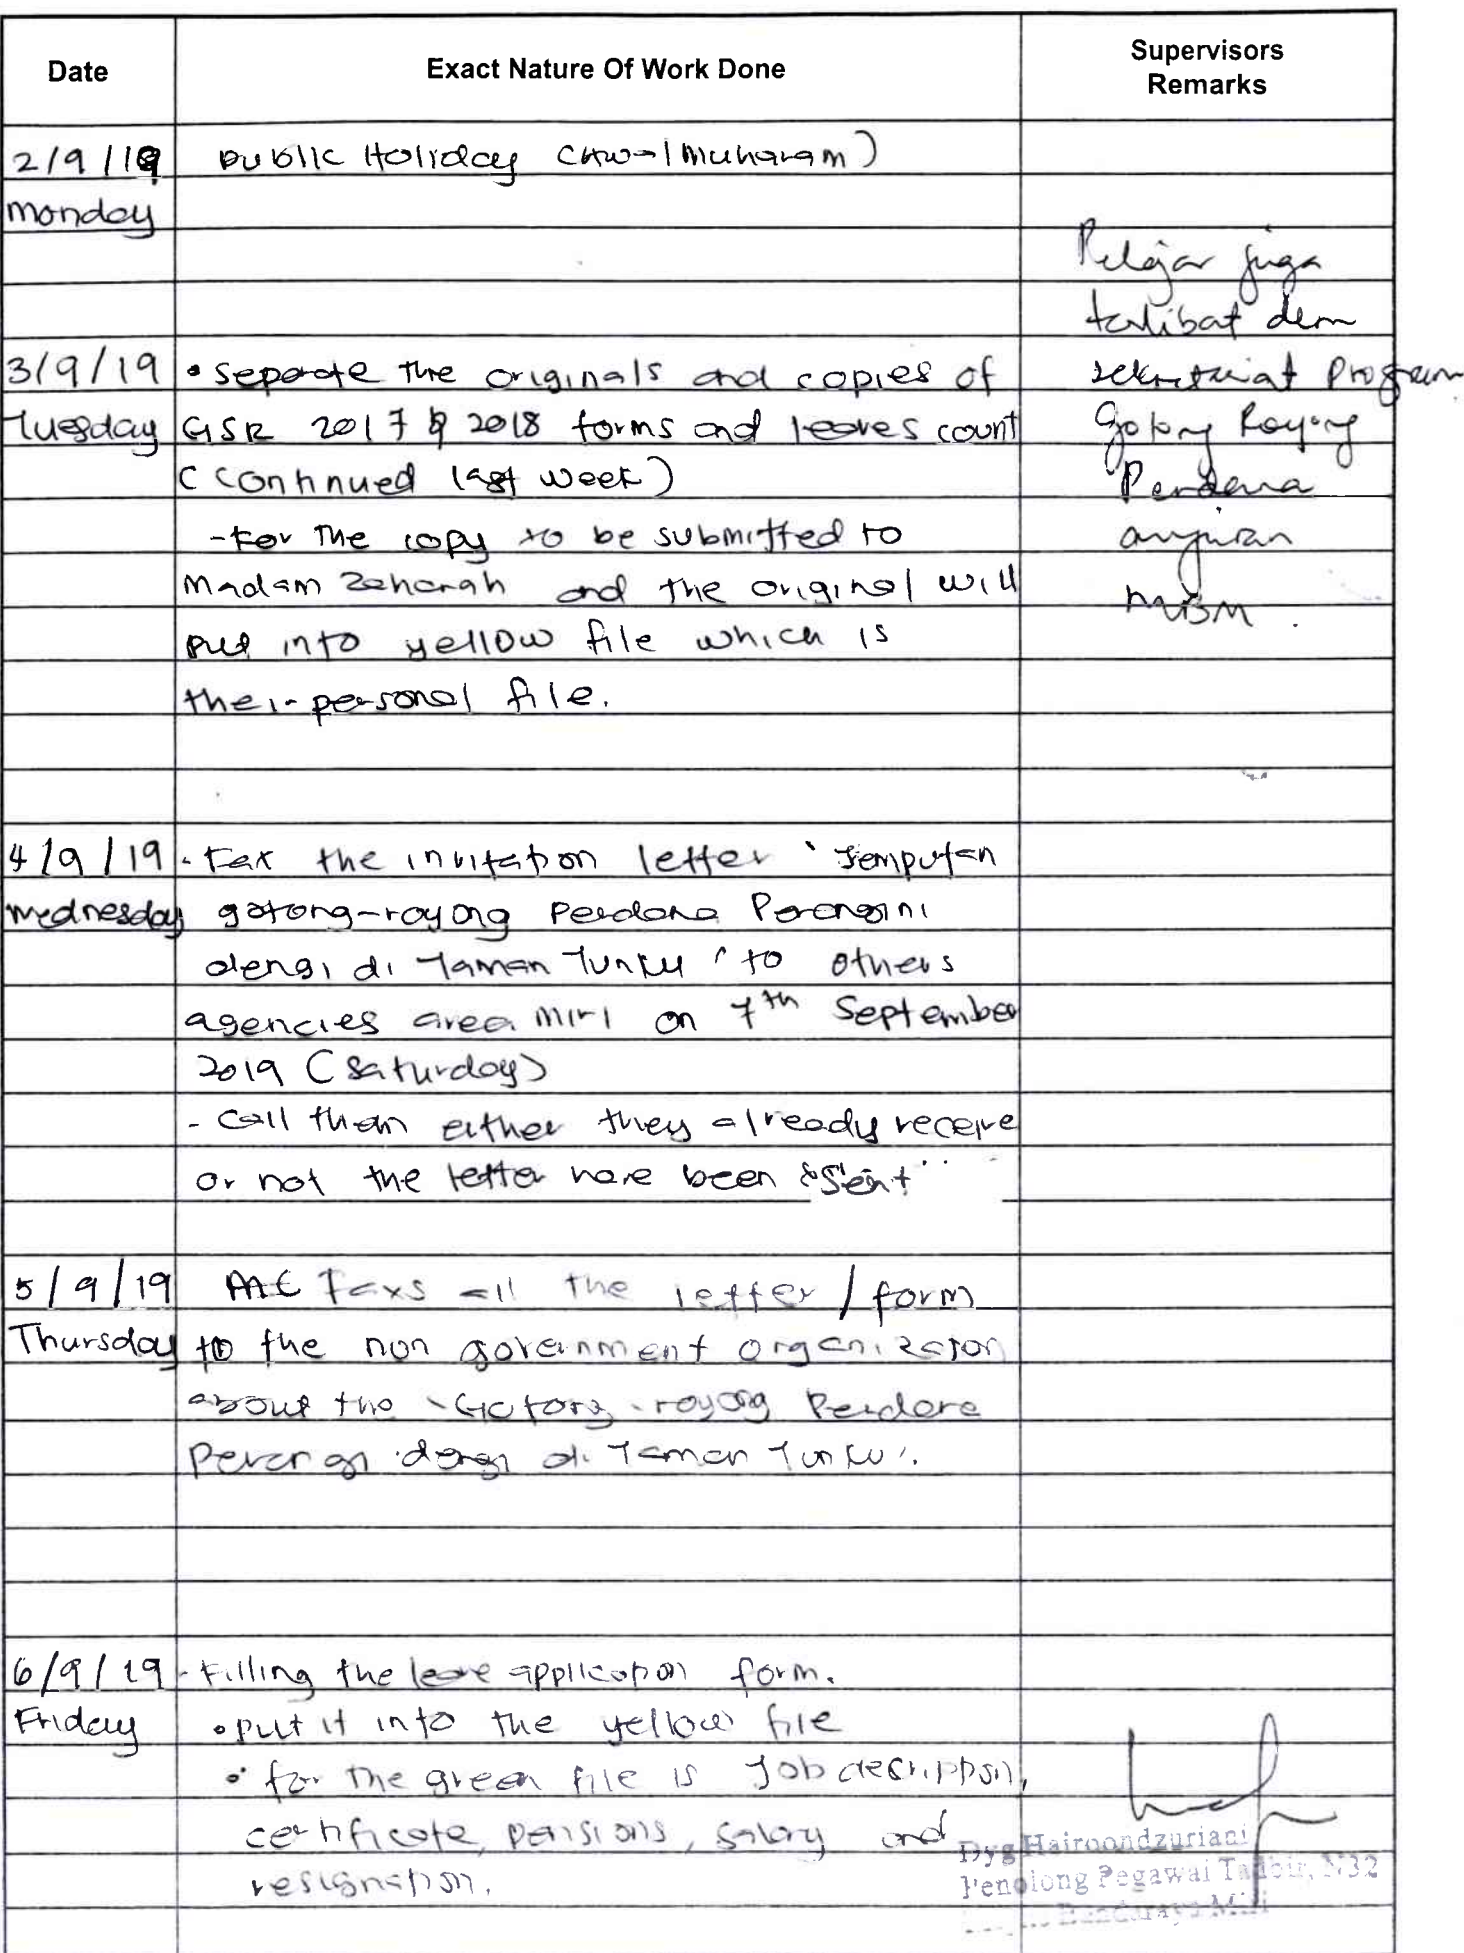 Date Exact Nature Of Work Done Supervisors Remarks
2/9/19 Public Holiday (Awal Muharam)
Monday
Pelajar juga
terlibat dlm
3/9/19 • Separate the originals and copies of
sekretariat Program
Tuesday GSR 2017 & 2018 forms and leaves count
Gotong Royong
(Continued last week)
Perdana
- For the copy to be submitted to
anjuran
Madam Zaharah and the original will
MBM.
put into yellow file which is
their personal file.
4/9/19 - Fax the invitation letter 'Jemputan
Wednesday gotong-royong Perdana Perangi
dengi di Taman Tunku' to others
agencies area Miri on 7th September
2019 (Saturday)
- Call them either they already receive
or not the letter have been sent
5/9/19 Faxs all the letter / form
Thursday to the non government organization
about the 'Gotong-royong Perdana
Perangi dengi di Taman Tunku'.
6/9/19 - Filling the leave application form.
Friday • put it into the yellow file
• for the green file is Job description,
certificate, pensions, salary and
resignation.
Dyg Hairoondzuriani
Penolong Pegawai Tadbir, N32
Bandaraya Miri